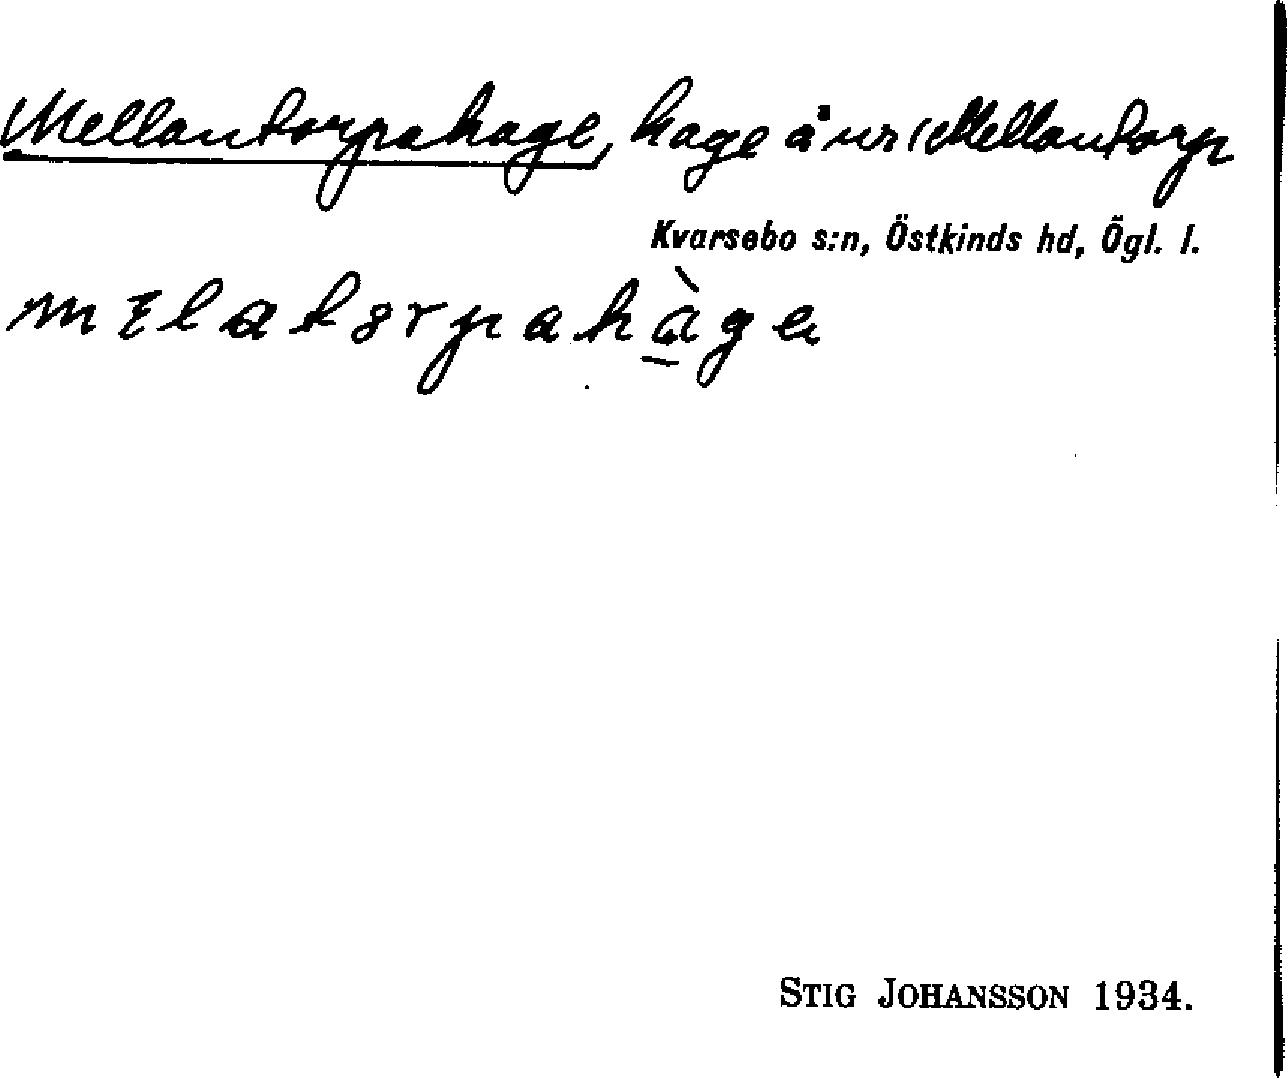 Mellantorpahage, hage å nr 1 Mellantorp
Kvarsebo s:n, Östkinds hd, Ögl. l.
STIG JOHANSSON 1934.